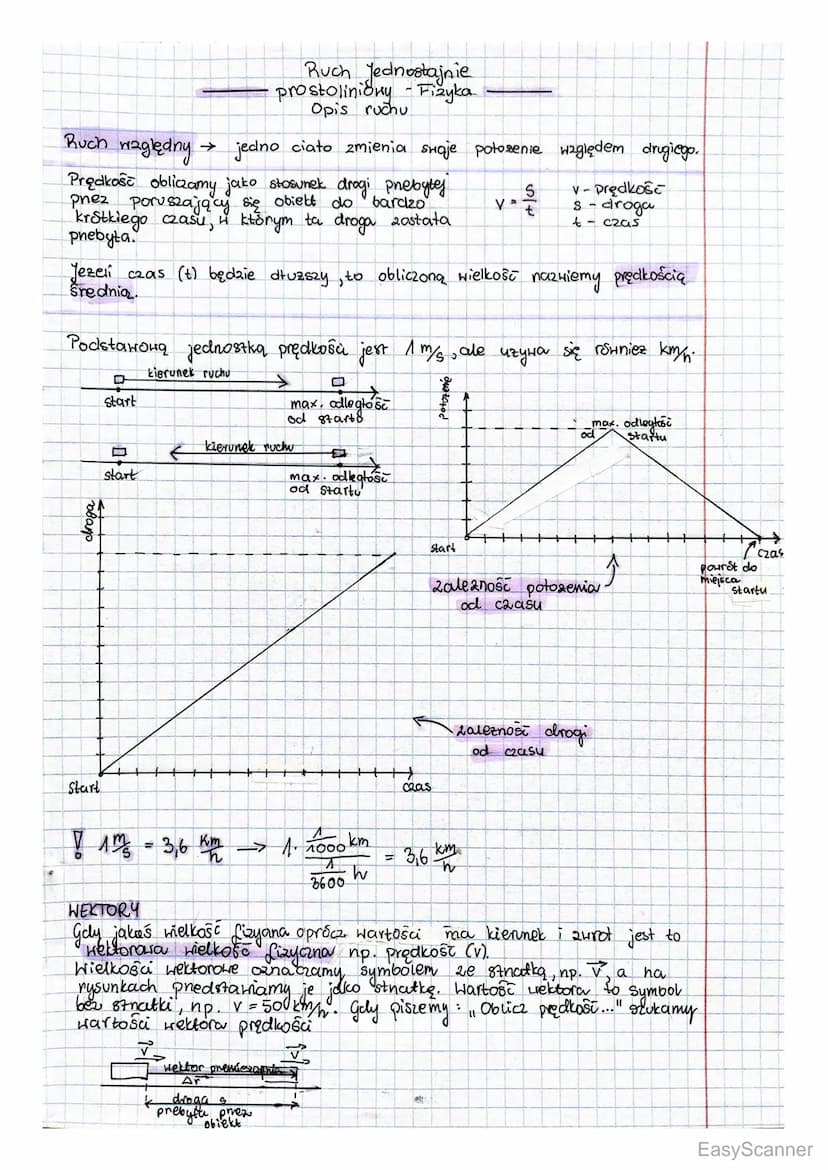 Ruch jednostajnie
prostoliniowy - Fizyka
Opis ruchu
Ruch względny → jedno ciało zmienia swoje położenie względem drugiego.
Prędkość obliczamy jako stosunek drogi przebytej
przez poruszający się obiekt do bardzo
krótkiego czasu, w którym ta droga została
przebyta.
v = s/t
v - prędkość
s - droga
t - czas
Jeżeli czas (t) będzie dłuższy, to obliczoną wielkość nazwiemy prędkością
średnią.
Podstawową jednostką prędkości jest 1 m/s, ale używa się również km/h.
kierunek ruchu
start
max. odległość
od startu
kierunek ruchu
start
max. odległość
od startu
położenie
max. odległość
od startu
start
czas
powrót do
miejsca
startu
zależność położenia
od czasu
droga
zależność drogi
od czasu
Start
czas
! 1 m/s = 3,6 km/h → 1 · (1/1000 km)/(1/3600 h) = 3,6 km/h
WEKTORY
Gdy jakaś wielkość fizyczna oprócz wartości ma kierunek i zwrot jest to
wektorowa wielkość fizyczna np. prędkość (v).
Wielkości wektorowe oznaczamy symbolem ze strzałką, np. v⃗, a na
rysunkach przedstawiamy je jako strzałkę. Wartość wektora to symbol
bez strzałki, np. v = 50 km/h. Gdy piszemy: „Oblicz prędkość..." szukamy
wartości wektora prędkości
v⃗ v⃗
wektor przemieszczenia
Δr⃗
droga s
przebyta przez
obiekt
EasyScanner